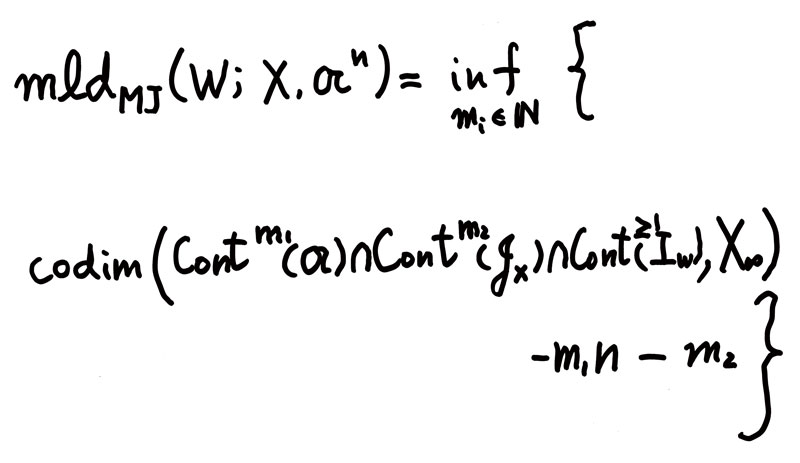 mld_MJ(W; X, 𝔞^n) = inf_{m_i ∈ ℕ} {
codim(Cont^{m_1}(𝔞)∩Cont^{m_2}(𝒥_X)∩Cont^{≥1}(I_W), X_∞)
-m_1n - m_2 }